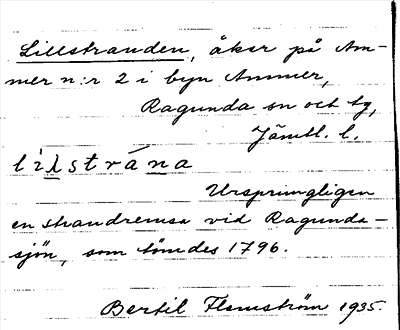 Lillstranden, åker på Am-
mer n:r 2 i byn Ammer,
Ragunda sn och tg,
Jämtl. l.
lilstrána
Ursprungligen
en strandremsa vid Ragunda-
sjön, som tömdes 1796.
Bertil Flemström 1935.